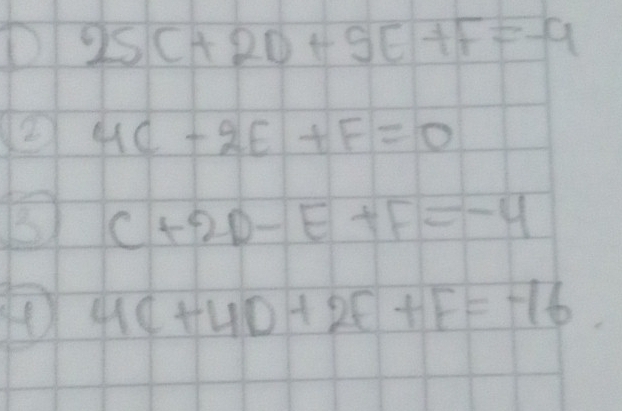 ① 25C+2D+5E+F=-4
② 4C-2E+F=0
③ C+2D-E+F=-4
④ 4C+4D+2E+F=-16